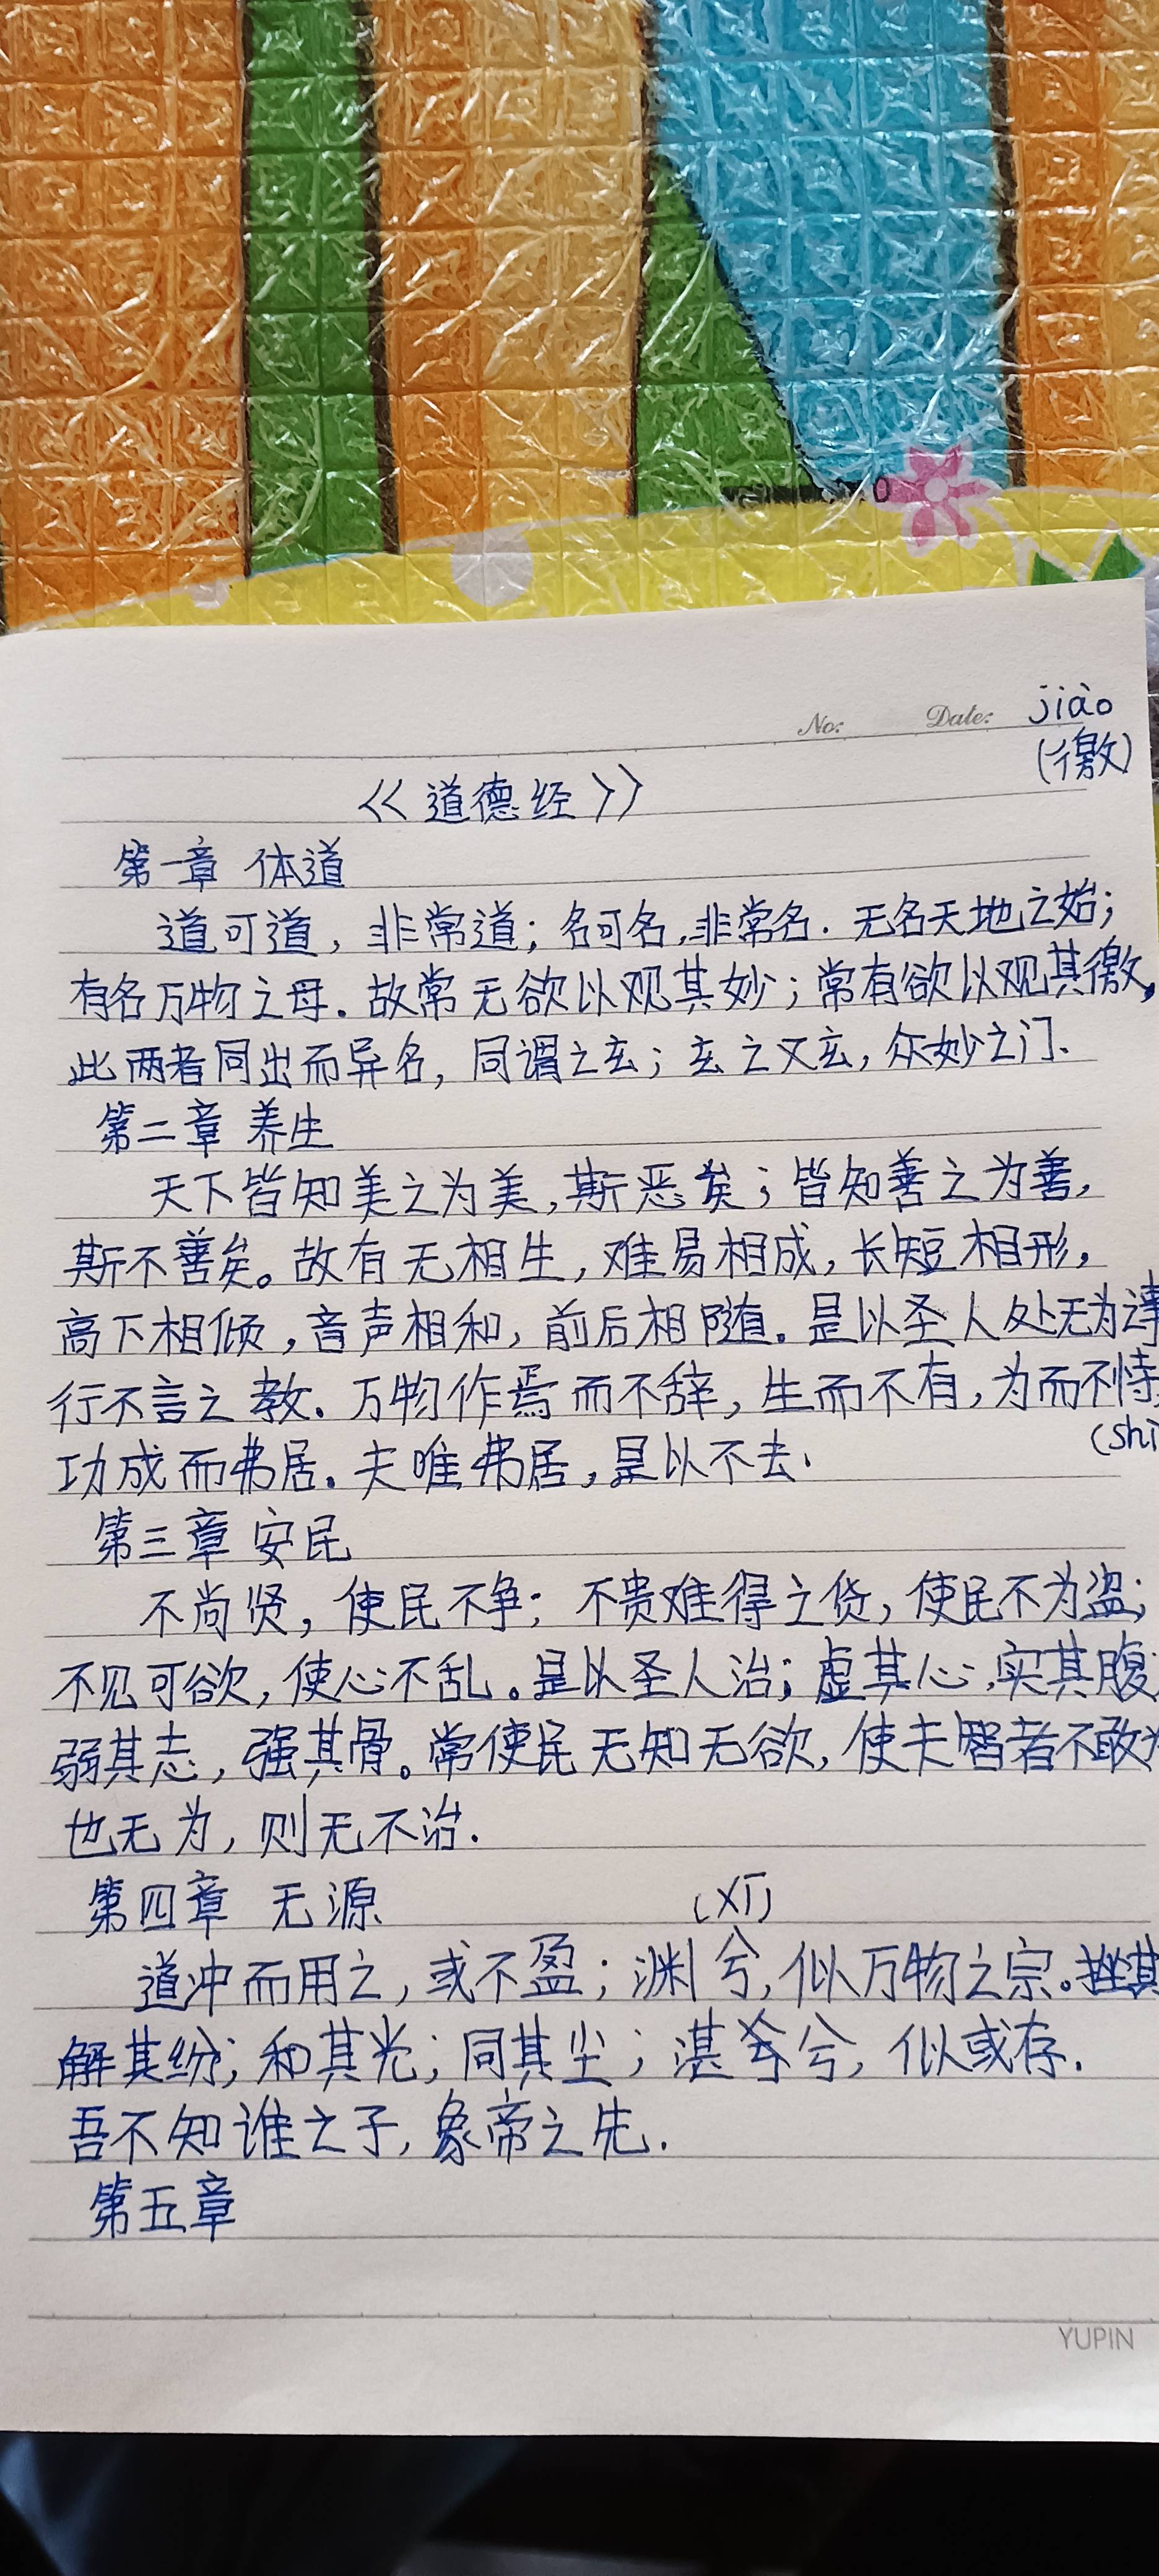 No: Date: jiào
(徼)
《道德经》
第一章 体道
道可道，非常道；名可名，非常名. 无名天地之始；
有名万物之母. 故常无欲以观其妙；常有欲以观其徼，
此两者同出而异名，同谓之玄；玄之又玄，众妙之门、
第二章 养生
天下皆知美之为美，斯恶矣；皆知善之为善，
斯不善矣。故有无相生，难易相成，长短相形，
高下相倾，音声相和，前后相随. 是以圣人处无为
行不言之教. 万物作焉而不辞，生而不有，为而不恃
(shi
功成而弗居. 夫唯弗居，是以不去.
第三章 安民
不尚贤，使民不争；不贵难得之货，使民不为盗；
不见可欲，使心不乱。是以圣人治；虚其心，实其腹
弱其志，强其骨。常使民无知无欲，使夫智者不敢为
也无为，则无不治.
第四章 无源
(xī)
道冲而用之，或不盈；渊兮，似万物之宗。挫其
解其纷；和其光；同其尘；湛兮，似或存.
吾不知谁之子，象帝之先.
第五章
YUPIN